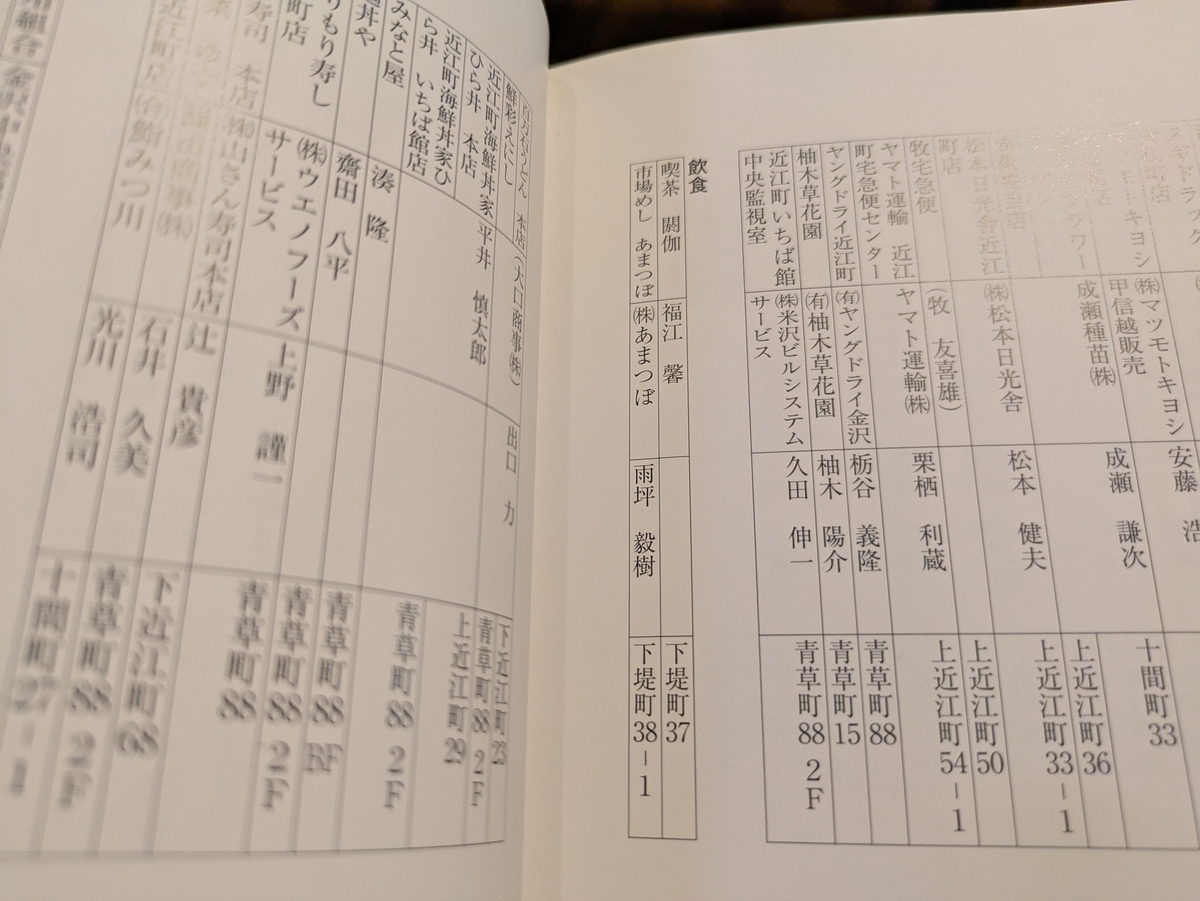 (株)マツモトキヨシ
甲信越販売
安藤 浩
十間町33
成瀬種苗(株)
成瀬 謙次
上近江町36
上近江町33－1
(株)松本日光舎
松本 健夫
上近江町50
牧宅急便
(牧 友喜雄)
ヤマト運輸 近江
町宅急便センター
ヤマト運輸(株)
栗栖 利蔵
上近江町54－1
ヤングドライ近江町
(有)ヤングドライ金沢
栃谷 義隆
青草町88
柚木草花園
(有)柚木草花園
柚木 陽介
青草町15
近江町いちば館
中央監視室
(株)米沢ビルシステム
サービス
久田 伸一
青草町88 2F
飲食
喫茶 閼伽
福江 馨
下堤町37
市場めし あまつぼ
(株)あまつぼ
雨坪 毅樹
下堤町38－1
百万石うどん 本店
(大口商事(株))
出口 力
下近江町23
鮮彩えにし
青草町88 2F
近江町海鮮丼家
ひら井 本店
平井 慎太郎
上近江町29
近江町海鮮丼家ひ
ら井 いちば館店
青草町88 2F
みなと屋
湊 隆
丼や
齋田 八平
青草町88 BF
りもり寿し
町店
(株)ウエノフーズ
サービス
上野 謹一
青草町88 2F
寿司 本店
(株)山さん寿司本店
辻 貴彦
青草町88
石井 久美
下近江町68
近江町店
(有)鮨みつ川
光川 浩司
青草町88 2F
十間町27－1